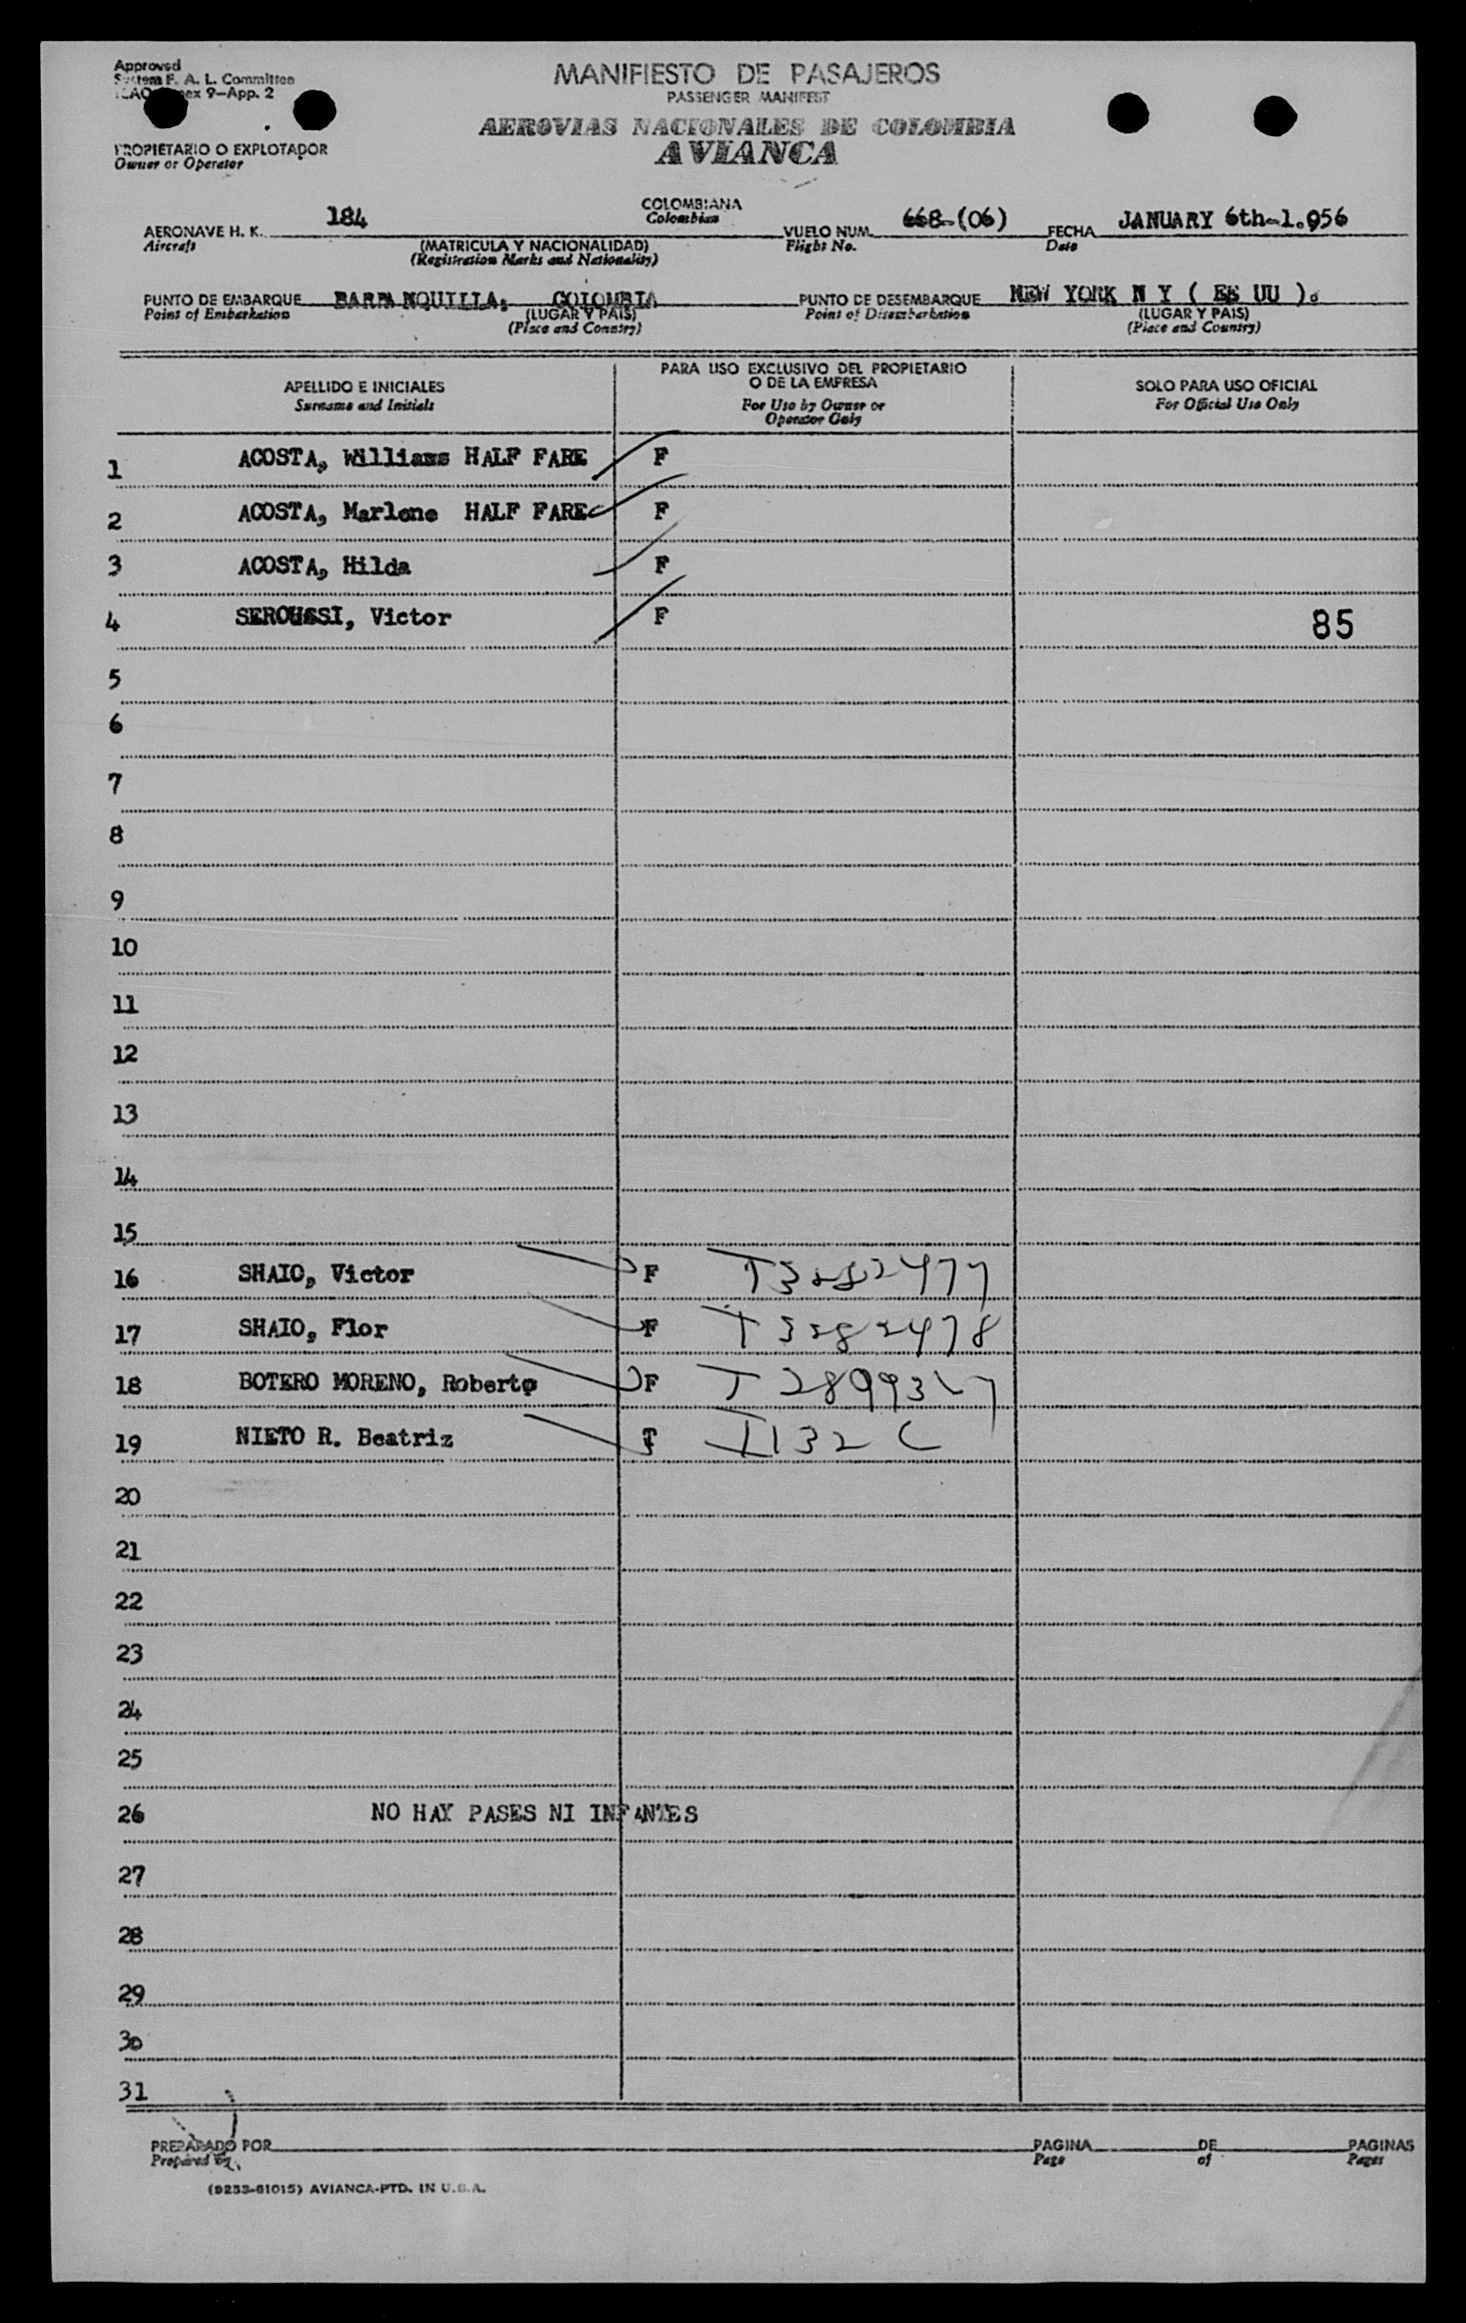 Approved
System F. A. L. Committee
ICAO Annex 9-App. 2
MANIFIESTO DE PASAJEROS
PASSENGER MANIFEST
AEROVIAS NACIONALES DE COLOMBIA
AVIANCA
PROPIETARIO O EXPLOTADOR
Owner or Operator
AERONAVE H. K. 184 COLOMBIANA VUELO NUM. 668-(06) FECHA JANUARY 6th-1.956
Aircraft Colombian Flight No. Date
(MATRICULA Y NACIONALIDAD)
(Registration Marks and Nationality)
PUNTO DE EMBARQUE BARRANQUILLA, COLOMBIA PUNTO DE DESEMBARQUE NEW YORK N Y ( EE UU ).
Point of Embarkation (LUGAR Y PAIS) Point of Disembarkation (LUGAR Y PAIS)
(Place and Country) (Place and Country)
APELLIDO E INICIALES
Surname and Initials
PARA USO EXCLUSIVO DEL PROPIETARIO
O DE LA EMPRESA
For Use by Owner or
Operator Only
SOLO PARA USO OFICIAL
For Official Use Only
1 ACOSTA, Williams HALF FARE F
2 ACOSTA, Marlene HALF FARE F
3 ACOSTA, Hilda F
4 SEROUSSI, Victor F 85
5
6
7
8
9
10
11
12
13
14
15
16 SHAIO, Victor F T3282477
17 SHAIO, Flor F T3282478
18 BOTERO MORENO, Roberto F
19 NIETO R. Beatriz
20
21
22
23
24
25
26 NO HAY PASES NI INFANTES
27
28
29
30
31
PREPARADO POR PAGINA DE PAGINAS
Prepared by Page of Pages
(9253-61015) AVIANCA-PTD. IN U.S.A.